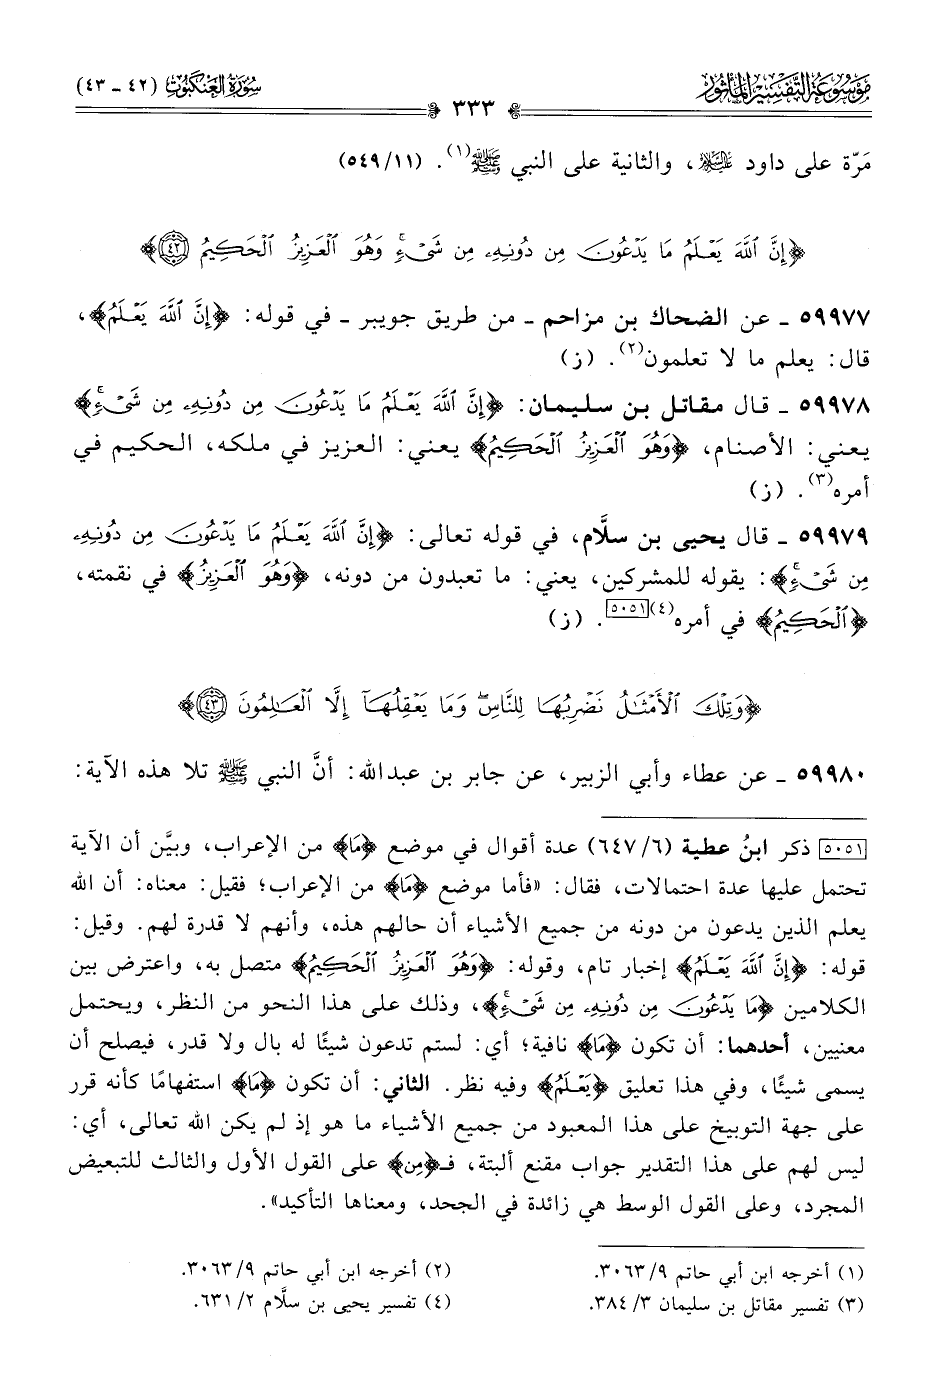 مَوْسُوعَة التَّفْسِير المَأْثُور
سُورَة العَنكَبُوت (٤٢ - ٤٣)
٣٣٣
مَرّة على داود عليه السلام، والثانية على النبي ﷺ(١). (٥٤٩/١١)
﴿إِنَّ ٱللَّهَ يَعْلَمُ مَا يَدْعُونَ مِن دُونِهِۦ مِن شَىْءٍۚ وَهُوَ ٱلْعَزِيزُ ٱلْحَكِيمُ ٤٢﴾
٥٩٩٧٧ ـ عن الضحاك بن مزاحم ـ من طريق جويبر ـ في قوله: ﴿إِنَّ ٱللَّهَ يَعْلَمُ﴾،
قال: يعلم ما لا تعلمون(٢). (ز)
٥٩٩٧٨ ـ قال مقاتل بن سليمان: ﴿إِنَّ ٱللَّهَ يَعْلَمُ مَا يَدْعُونَ مِن دُونِهِۦ مِن شَىْءٍۚ﴾
يعني: الأصنام، ﴿وَهُوَ ٱلْعَزِيزُ ٱلْحَكِيمُ﴾ يعني: العزيز في ملكه، الحكيم في
أمره(٣). (ز)
٥٩٩٧٩ ـ قال يحيى بن سلَّام، في قوله تعالى: ﴿إِنَّ ٱللَّهَ يَعْلَمُ مَا يَدْعُونَ مِن دُونِهِۦ
مِن شَىْءٍۚ﴾: يقوله للمشركين، يعني: ما تعبدون من دونه، ﴿وَهُوَ ٱلْعَزِيزُ﴾ في نقمته،
﴿ٱلْحَكِيمُ﴾ في أمره(٤)[٥٠٥١]. (ز)
﴿وَتِلْكَ ٱلْأَمْثَٰلُ نَضْرِبُهَا لِلنَّاسِۖ وَمَا يَعْقِلُهَآ إِلَّا ٱلْعَٰلِمُونَ ٤٣﴾
٥٩٩٨٠ ـ عن عطاء وأبي الزبير، عن جابر بن عبدالله: أنَّ النبي ﷺ تلا هذه الآية:
[٥٠٥١] ذكر ابنُ عطية (٦/ ٦٤٧) عدة أقوال في موضع ﴿مَا﴾ من الإعراب، وبيَّن أن الآية
تحتمل عليها عدة احتمالات، فقال: «فأما موضع ﴿مَا﴾ من الإعراب؛ فقيل: معناه: أن الله
يعلم الذين يدعون من دونه من جميع الأشياء أن حالهم هذه، وأنهم لا قدرة لهم. وقيل:
قوله: ﴿إِنَّ ٱللَّهَ يَعْلَمُ﴾ إخبار تام، وقوله: ﴿وَهُوَ ٱلْعَزِيزُ ٱلْحَكِيمُ﴾ متصل به، واعترض بين
الكلامين ﴿مَا يَدْعُونَ مِن دُونِهِۦ مِن شَىْءٍۚ﴾، وذلك على هذا النحو من النظر، ويحتمل
معنيين، أحدهما: أن تكون ﴿مَا﴾ نافية؛ أي: لستم تدعون شيئًا له بال ولا قدر، فيصلح أن
يسمى شيئًا، وفي هذا تعليق ﴿يَعْلَمُ﴾ وفيه نظر. الثاني: أن تكون ﴿مَا﴾ استفهامًا كأنه قرر
على جهة التوبيخ على هذا المعبود من جميع الأشياء ما هو إذ لم يكن الله تعالى، أي:
ليس لهم على هذا التقدير جواب مقنع ألبتة، فـ﴿مِن﴾ على القول الأول والثالث للتبعيض
المجرد، وعلى القول الوسط هي زائدة في الجحد، ومعناها التأكيد».
(١) أخرجه ابن أبي حاتم ٩/ ٣٠٦٣.
(٢) أخرجه ابن أبي حاتم ٩/ ٣٠٦٣.
(٣) تفسير مقاتل بن سليمان ٣/ ٣٨٤.
(٤) تفسير يحيى بن سلَّام ٢/ ٦٣١.